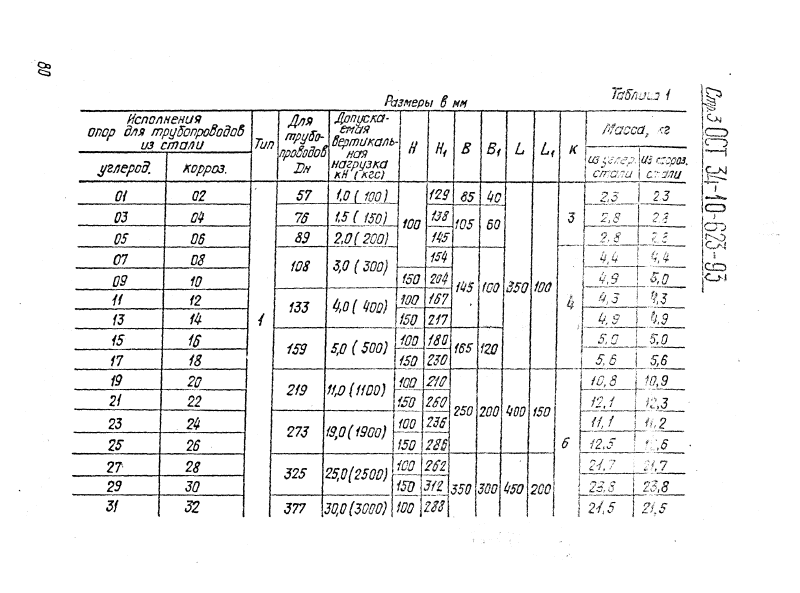 80
Стр.3 ОСТ 34-10-623-93
Таблица 1
Размеры в мм
Исполнения опор для трубопроводов из стали | Тип | Для трубопроводов Dн | Допускаемая вертикальная нагрузка кН (кгс) | H | H₁ | B | B₁ | L | L₁ | K | Масса, кг
углерод. | корроз. | из углер. стали | из корроз. стали
01 02 1 57 1,0 (100) 100 129 85 40 350 100 3 2,3 2,3
03 04 76 1.5 (150) 138 105 60 2,8
05 06 89 2,0 (200) 145 2,8
07 08 108 3,0 (300) 154 145 100 4 4,4 4,4
09 10 150 204 4,9 5,0
11 12 133 4,0 (400) 100 167 4,3 4,3
13 14 150 217 4,9 4,9
15 16 159 5,0 (500) 100 180 165 120 5,0 5,0
17 18 150 230 5,6 5,6
19 20 219 11,0 (1100) 100 210 250 200 400 150 6 10,8 10,9
21 22 150 260 12,1 12,3
23 24 273 19,0 (1900) 100 236 11,1
25 26 150 286 12,5
27 28 325 25,0 (2500) 100 262 350 300 450 200 21,7 21,7
29 30 150 312 23,8 23,8
31 32 377 30,0 (3000) 100 288 21,5 21,5